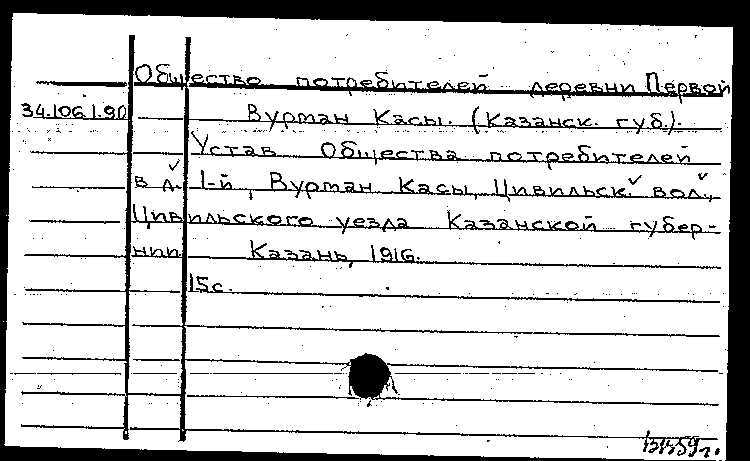 Общество потребителей деревни Первой
34.106.1.90 Вурман Касы. (Казанск. губ.).
Устав Общества потребителей
в д. 1-й, Вурман Касы, Цивильск. вол.,
Цивильского уезда Казанской губер-
нии Казань, 1916.
15с.